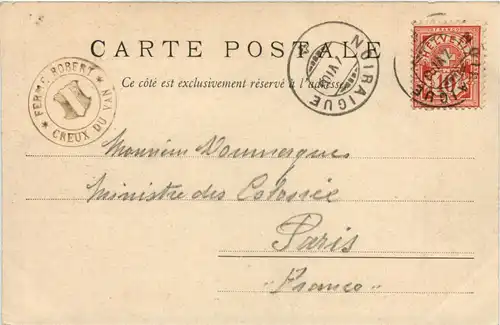 CARTE POSTALE
Ce côté est exclusivement réservé à l'adresse.
* FERME ROBERT *
CREUX DU VAN
NOIRAIGUE
HELVETIA
NOIRAIGUE
Monsieur Doumergue
Ministre des Colonies
Paris
France